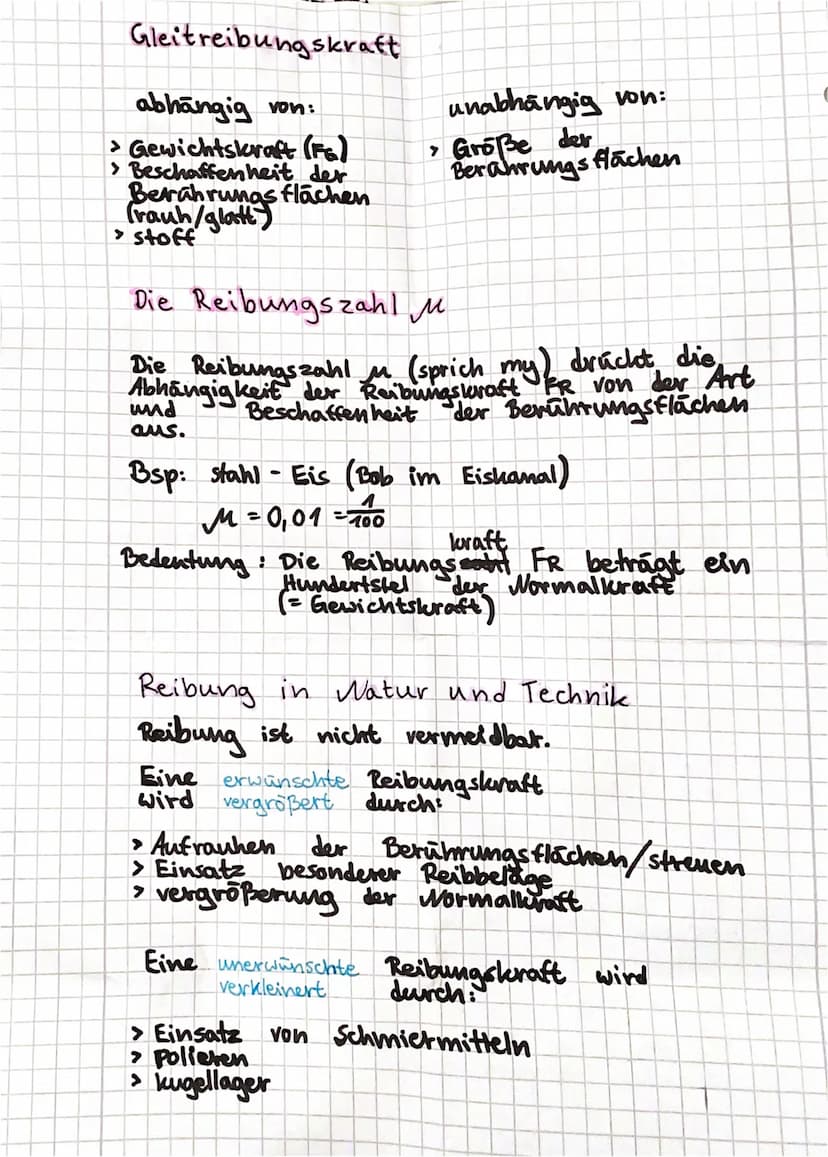 Gleitreibungskraft
abhängig von:
> Gewichtskraft (FG)
> Beschaffenheit der
Berührungsflächen
(rauh/glatt)
> stoff
unabhängig von:
> Größe der
Berührungsflächen
Die Reibungszahl μ
Die Reibungszahl μ (sprich my) drückt die
Abhängigkeit der Reibungskraft FR von der Art
und Beschaffenheit der Berührungsflächen
aus.
Bsp: Stahl - Eis (Bob im Eiskanal)
μ = 0,01 = 1/100
Bedeutung: Die Reibungskraft FR beträgt ein
Hundertstel der Normalkraft
(= Gewichtskraft)
Reibung in Natur und Technik
Reibung ist nicht vermeidbar.
Eine erwünschte Reibungskraft
wird vergrößert durch:
> Aufrauhen der Berührungsflächen/streuen
> Einsatz besonderer Reibbeläge
> vergrößerung der Normalkraft
Eine unerwünschte Reibungskraft wird
verkleinert durch:
> Einsatz von Schmiermitteln
> polieren
> kugellager